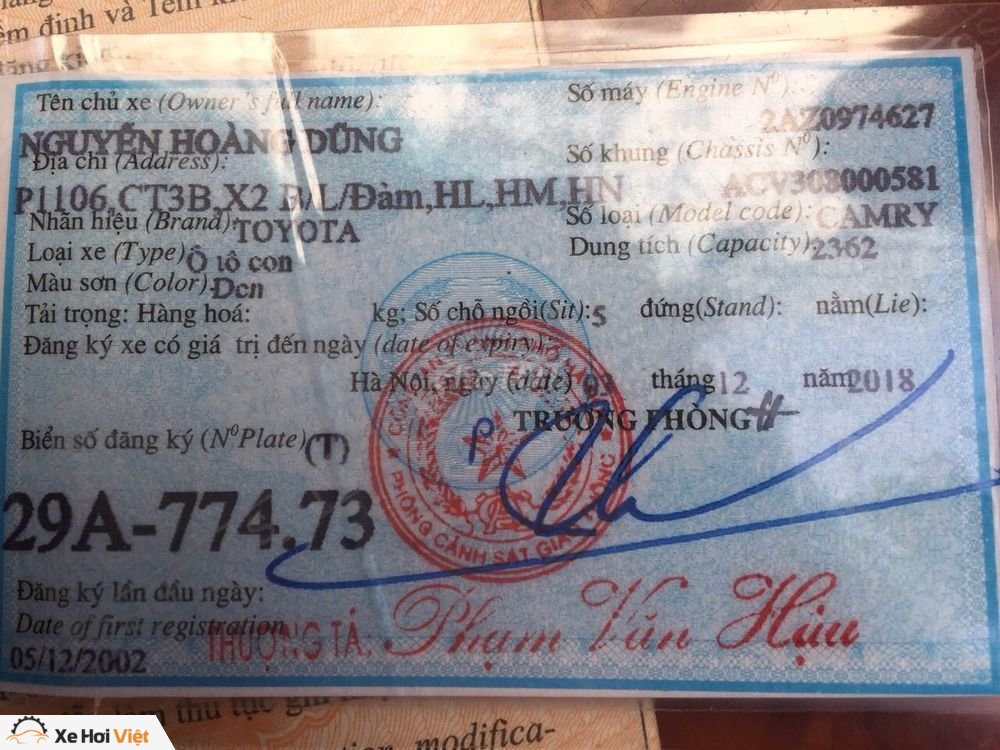 ểm định và Tem
Tên chủ xe (Owner's full name):
NGUYỄN HOÀNG DŨNG
Địa chỉ (Address):
P1106,CT3B,X2 B/L/Đàm,HL,HM,HN
Nhãn hiệu (Brand): TOYOTA
Loại xe (Type) Ô tô con
Màu sơn (Color) Đen
Số máy (Engine Nº):
2AZ0974627
Số khung (Chassis Nº):
ACV308000581
Số loại (Model code): CAMRY
Dung tích (Capacity) 2362
Tải trọng: Hàng hoá: kg; Số chỗ ngồi(Sit): 5 đứng(Stand): nằm(Lie):
Đăng ký xe có giá trị đến ngày (date of expiry):
Hà Nội, ngày (date) tháng 12 năm 2018
TRƯỞNG PHÒNG
Biển số đăng ký (NºPlate) (T)
29A-774.73
PHÒNG CẢNH SÁT GIAO THÔNG
Đăng ký lần đầu ngày:
Date of first registration
05/12/2002
THƯỢNG TÁ: Phạm Văn Hậu
làm thủ tục ghi
modifica-
Xe Hơi Việt